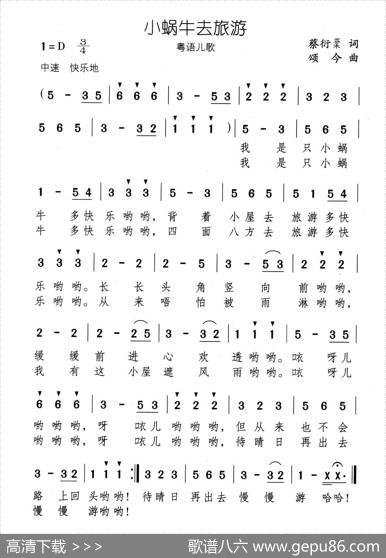 小蜗牛去旅游
1=D 3/4
粤语儿歌
蔡衍棻 词
颂今 曲
中速 快乐地
(5 - 35 | 6 6 6 | 3 - 53 | 3 3 3 | 3 - 23 | 2 2 2 | 3 2 3
5 6 5 | 5 - 3 | 3 - 32 | 1 1 1) | 5 - 3 | 5 6 5 |
我是只小蜗
我是只小蜗
1 - 54 | 3 3 3 | 5 - 3 | 5 6 5 | 5 1 54 |
牛多快乐哟哟,背着小屋去旅游多快
牛多快乐哟哟,四面八方去旅游多快
3 3 3 | 2 - 2 | 2 1 2 | 3 - 3 | - 53 | 2 2 2 |
乐哟哟。长长头角竖向前哟哟,
乐哟哟。从来唔怕被雨淋哟哟,
2 - 2 | 2 - 25 | 3 - 2 | 1 1 1 | 5 - 35 |
缓缓前进心欢透哟哟。咴呀儿
我有这小屋遮风雨哟哟。咴呀儿
6 6 6 | 3 - 53 | 2 2 2 | 3 2 3 | 5 6 5 |
哟哟哟,呀咴儿哟哟哟,但从来也不会
哟哟哟,呀咴儿哟哟哟,待晴日再出去
3 - 32 | 1 1 1 :| 3 2 3 | 5 6 5 | 3 - 32 | 1 - xx | x - - ‖
路上回头哟哟!待晴日再出去慢慢游哈哈!
慢慢游哟哟!
高清下载 >>>
歌谱八六 www.gepu86.com